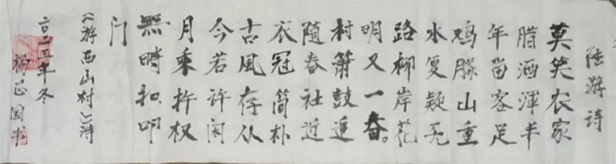 陆游诗
莫笑农家
腊酒浑半
年留客足
鸡豚山重
水复疑无
路柳岸花
明又一春。
村箫鼓追
随春社近
衣冠简朴
古风存从
今若许闲
月乘拄杖
無時叩
门
《游西山村》诗
年冬
正国书